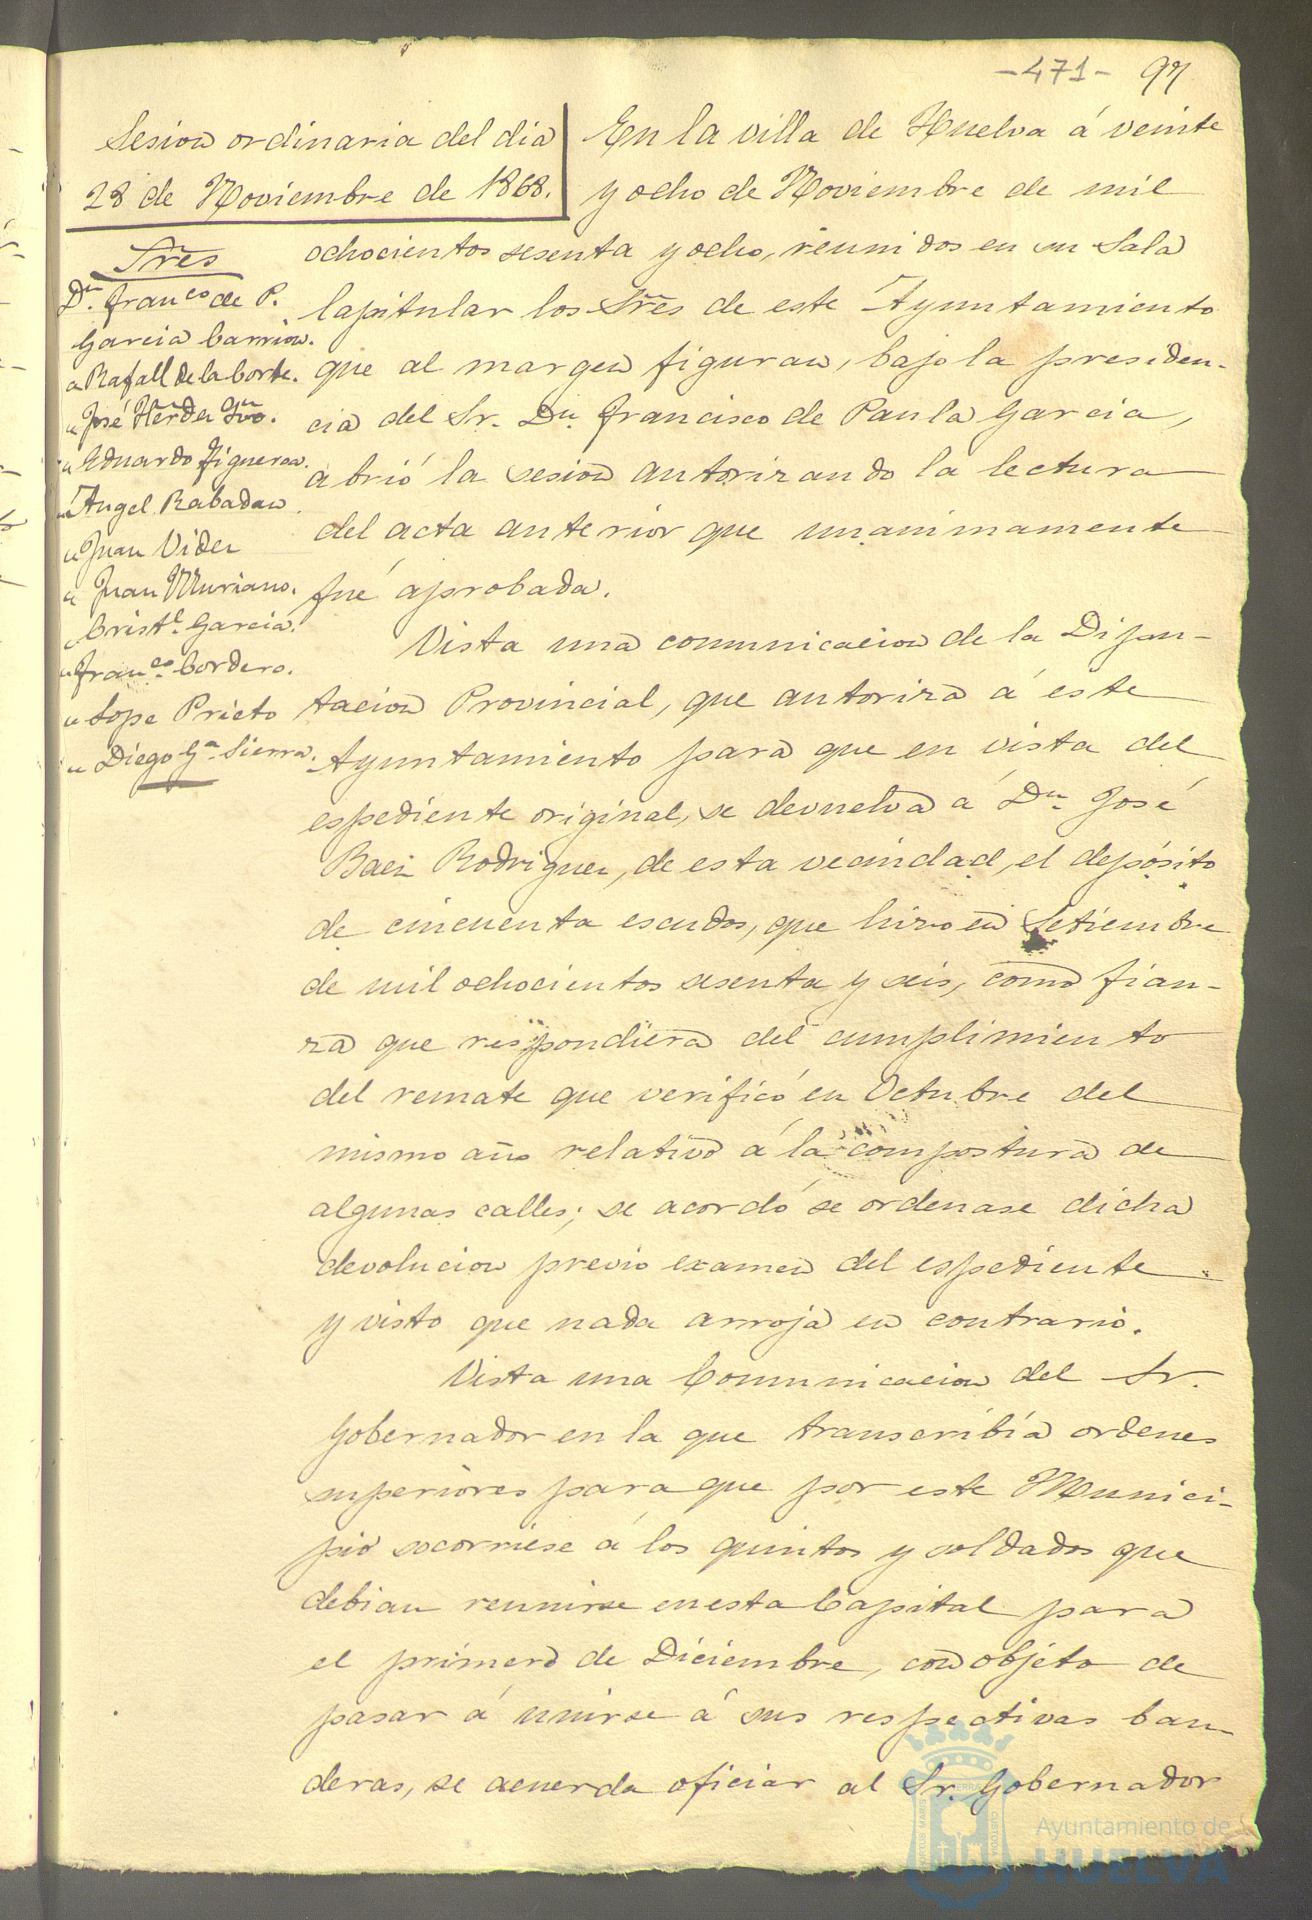 -471- 97
Sesion ordinaria del dia
28 de Noviembre de 1868.
Sres
Dn. Franco de P.
Garcia Carrion.
" Rafall de la Corte.
" José Hernder
" Eduardo Figueroa.
" Angel Rabadan.
" Juan Vides
" Juan Muriano.
" Cristl. Garcia.
" Franco Cordero.
" Lope Prieto
" Diego Ga. Sierra.
En la villa de Huelva á veinte
y ocho de Noviembre de mil
ochocientos sesenta y ocho, reunidos en su Sala
Capitular los Sres de este Ayuntamiento
que al margen figuran, bajo la presiden-
cia del Sr. Dn. Francisco de Paula Garcia,
abrió la sesion autorizando la lectura
del acta anterior que unanimamente
fué aprobada.
Vista una comunicacion de la Dipu-
tacion Provincial, que autoriza á este
Ayuntamiento para que en vista del
espediente original, se devuelva á Dn. José
Baez Rodriguez, de esta vecindad, el depósito
de cincuenta escudos, que hizo en Setiembre
de mil ochocientos sesenta y seis, como fian-
za que respondiera del cumplimiento
del remate que verificó en Octubre del
mismo año relativo á la compostura de
algunas calles; se acordó se ordenase dicha
devolucion previo examen del espediente
y visto que nada arroja en contrario.
Vista una Comunicacion del Sr.
Gobernador en la que transcribia ordenes
superiores para que por este Munici-
pio socorriese á los quintos y soldados que
debian reunirse en esta Capital para
el primero de Diciembre, con objeto de
pasar á unirse á sus respectivas ban-
deras, se acuerda oficiar al Sr. Gobernador
Ayuntamiento de
HUELVA